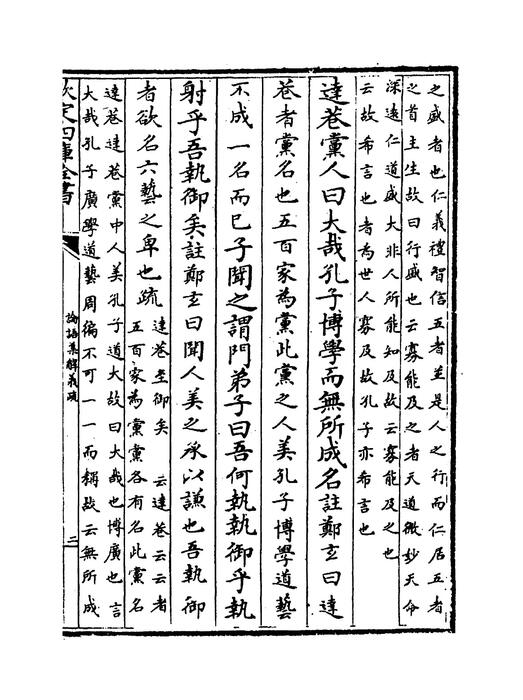 之盛者也仁義禮智信五者並是人之行而仁居五者
之首主生故曰行盛也云寡能及之者天道微妙天命
深遠仁道盛大非人所能知及故云寡能及之也
云故希言也者為世人寡及故孔子亦希言也
達巷黨人曰大哉孔子博學而無所成名註鄭玄曰達
巷者黨名也五百家為黨此黨之人美孔子博學道藝
不成一名而已子聞之謂門弟子曰吾何執執御乎執
射乎吾執御矣註鄭玄曰聞人美之承以謙也吾執御
者欲名六藝之卑也疏達巷至御矣 云達巷云云者
五百家為黨黨各有名此黨名
達巷達巷黨中人美孔子道大故曰大哉也博廣也言
大哉孔子廣學道藝周徧不可一一而稱故云無所成
欽定四庫全書
論語集解義疏
二